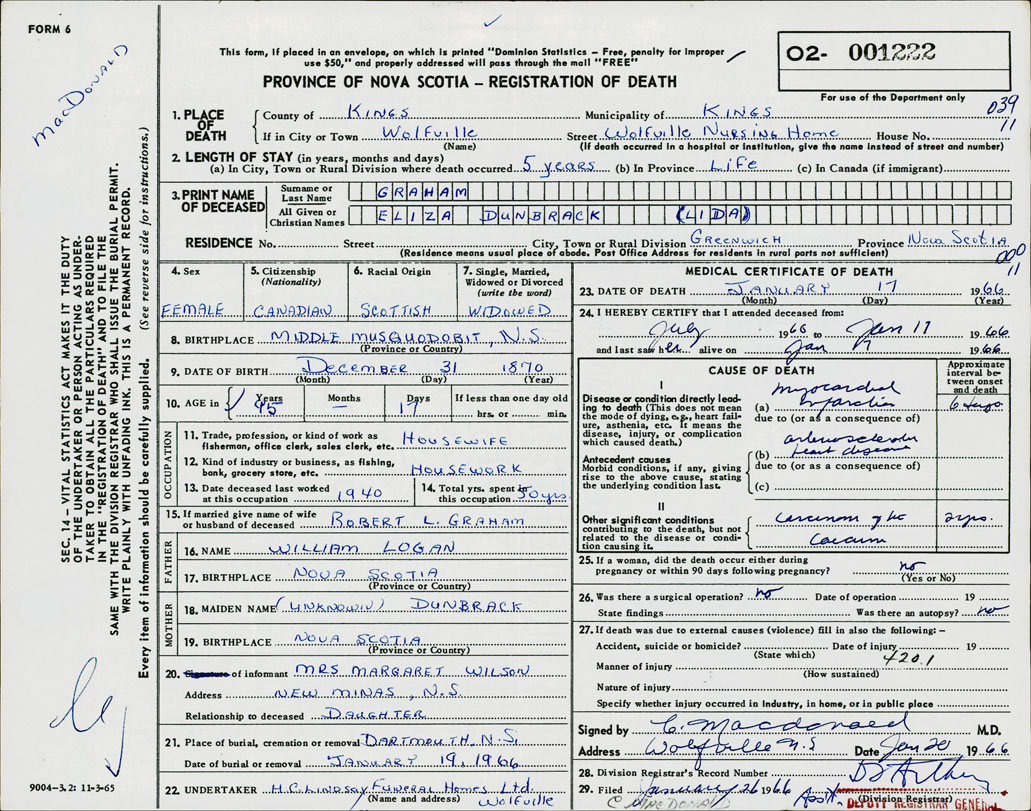 FORM 6
MacDonald
This form, if placed in an envelope, on which is printed "Dominion Statistics – Free, penalty for improper
use $50," and properly addressed will pass through the mail "FREE"
PROVINCE OF NOVA SCOTIA – REGISTRATION OF DEATH
02- 001222
For use of the Department only
039
11
1. PLACE OF DEATH
County of KINGS Municipality of KINGS
If in City or Town Wolfville Street Wolfville Nursing Home House No.
(Name) (If death occurred in a hospital or institution, give the name instead of street and number)
2. LENGTH OF STAY (in years, months and days)
(a) In City, Town or Rural Division where death occurred 5 years (b) In Province Life (c) In Canada (if immigrant)
3. PRINT NAME OF DECEASED
Surname or Last Name GRAHAM
All Given or Christian Names ELIZA DUNBRACK (LIDA)
RESIDENCE No. Street City, Town or Rural Division GREENWICH Province NOVA SCOTIA
(Residence means usual place of abode. Post Office Address for residents in rural parts not sufficient)
000
11
4. Sex FEMALE
5. Citizenship (Nationality) CANADIAN
6. Racial Origin SCOTTISH
7. Single, Married, Widowed or Divorced (write the word) WIDOWED
8. BIRTHPLACE MIDDLE MUSQUODOBIT, N.S.
(Province or Country)
9. DATE OF BIRTH December 31 1870
(Month) (Day) (Year)
10. AGE in Years 95 Months – Days 17 If less than one day old hrs. or min.
OCCUPATION
11. Trade, profession, or kind of work as
fisherman, office clerk, sales clerk, etc. HOUSEWIFE
12. Kind of industry or business, as fishing,
bank, grocery store, etc. HOUSEWORK
13. Date deceased last worked
at this occupation 1940
14. Total yrs. spent in
this occupation 50 yrs.
15. If married give name of wife
or husband of deceased ROBERT L. GRAHAM
FATHER
16. NAME WILLIAM LOGAN
17. BIRTHPLACE NOVA SCOTIA
(Province or Country)
MOTHER
18. MAIDEN NAME (UNKNOWN) DUNBRACK
19. BIRTHPLACE NOVA SCOTIA
(Province or Country)
20. Signature of informant MRS MARGARET WILSON
Address NEW MINAS, N.S.
Relationship to deceased DAUGHTER
21. Place of burial, cremation or removal DARTMOUTH, N.S.
Date of burial or removal JANUARY 19, 1966
22. UNDERTAKER H.C. LINDSAY FUNERAL HOMES Ltd.
(Name and address) Wolfville
MEDICAL CERTIFICATE OF DEATH
23. DATE OF DEATH JANUARY 17 1966
(Month) (Day) (Year)
24. I HEREBY CERTIFY that I attended deceased from:
July 1960 to Jan 17 1966
and last saw her alive on Jan 17 1966
CAUSE OF DEATH
Approximate interval between onset and death
I
Disease or condition directly leading to death (This does not mean the mode of dying, e.g., heart failure, asthenia, etc. It means the disease, injury, or complication which caused death.)
(a) myocardial infarction 6 days
due to (or as a consequence of)
Antecedent causes
Morbid conditions, if any, giving rise to the above cause, stating the underlying condition last.
(b) arteriosclerotic heart disease
due to (or as a consequence of)
(c)
II
Other significant conditions
contributing to the death, but not related to the disease or condition causing it.
Carcinoma of the Caecum 2 yrs.
25. If a woman, did the death occur either during
pregnancy or within 90 days following pregnancy? no
(Yes or No)
26. Was there a surgical operation? no Date of operation 19
State findings Was there an autopsy? no
27. If death was due to external causes (violence) fill in also the following: –
Accident, suicide or homicide? Date of injury 19
(State which) 420.1
Manner of injury
(How sustained)
Nature of injury
Specify whether injury occurred in industry, in home, or in public place
Signed by C. Macdonald M.D.
Address Wolfville N.S Date Jan 20 1966
28. Division Registrar's Record Number
29. Filed January 26 1966
(Division Registrar)
C MACDONALD
Asst. DEPUTY REGISTRAR GENERAL
SEC. 14 – VITAL STATISTICS ACT MAKES IT THE DUTY
OF THE UNDERTAKER OR PERSON ACTING AS UNDER-
TAKER TO OBTAIN ALL THE PARTICULARS REQUIRED
IN THE "REGISTRATION OF DEATH" AND TO FILE THE
SAME WITH THE DIVISION REGISTRAR WHO SHALL ISSUE THE BURIAL PERMIT.
WRITE PLAINLY WITH UNFADING INK. THIS IS A PERMANENT RECORD.
Every item of information should be carefully supplied. (See reverse side for instructions.)
9004–3.2: 11-3-65